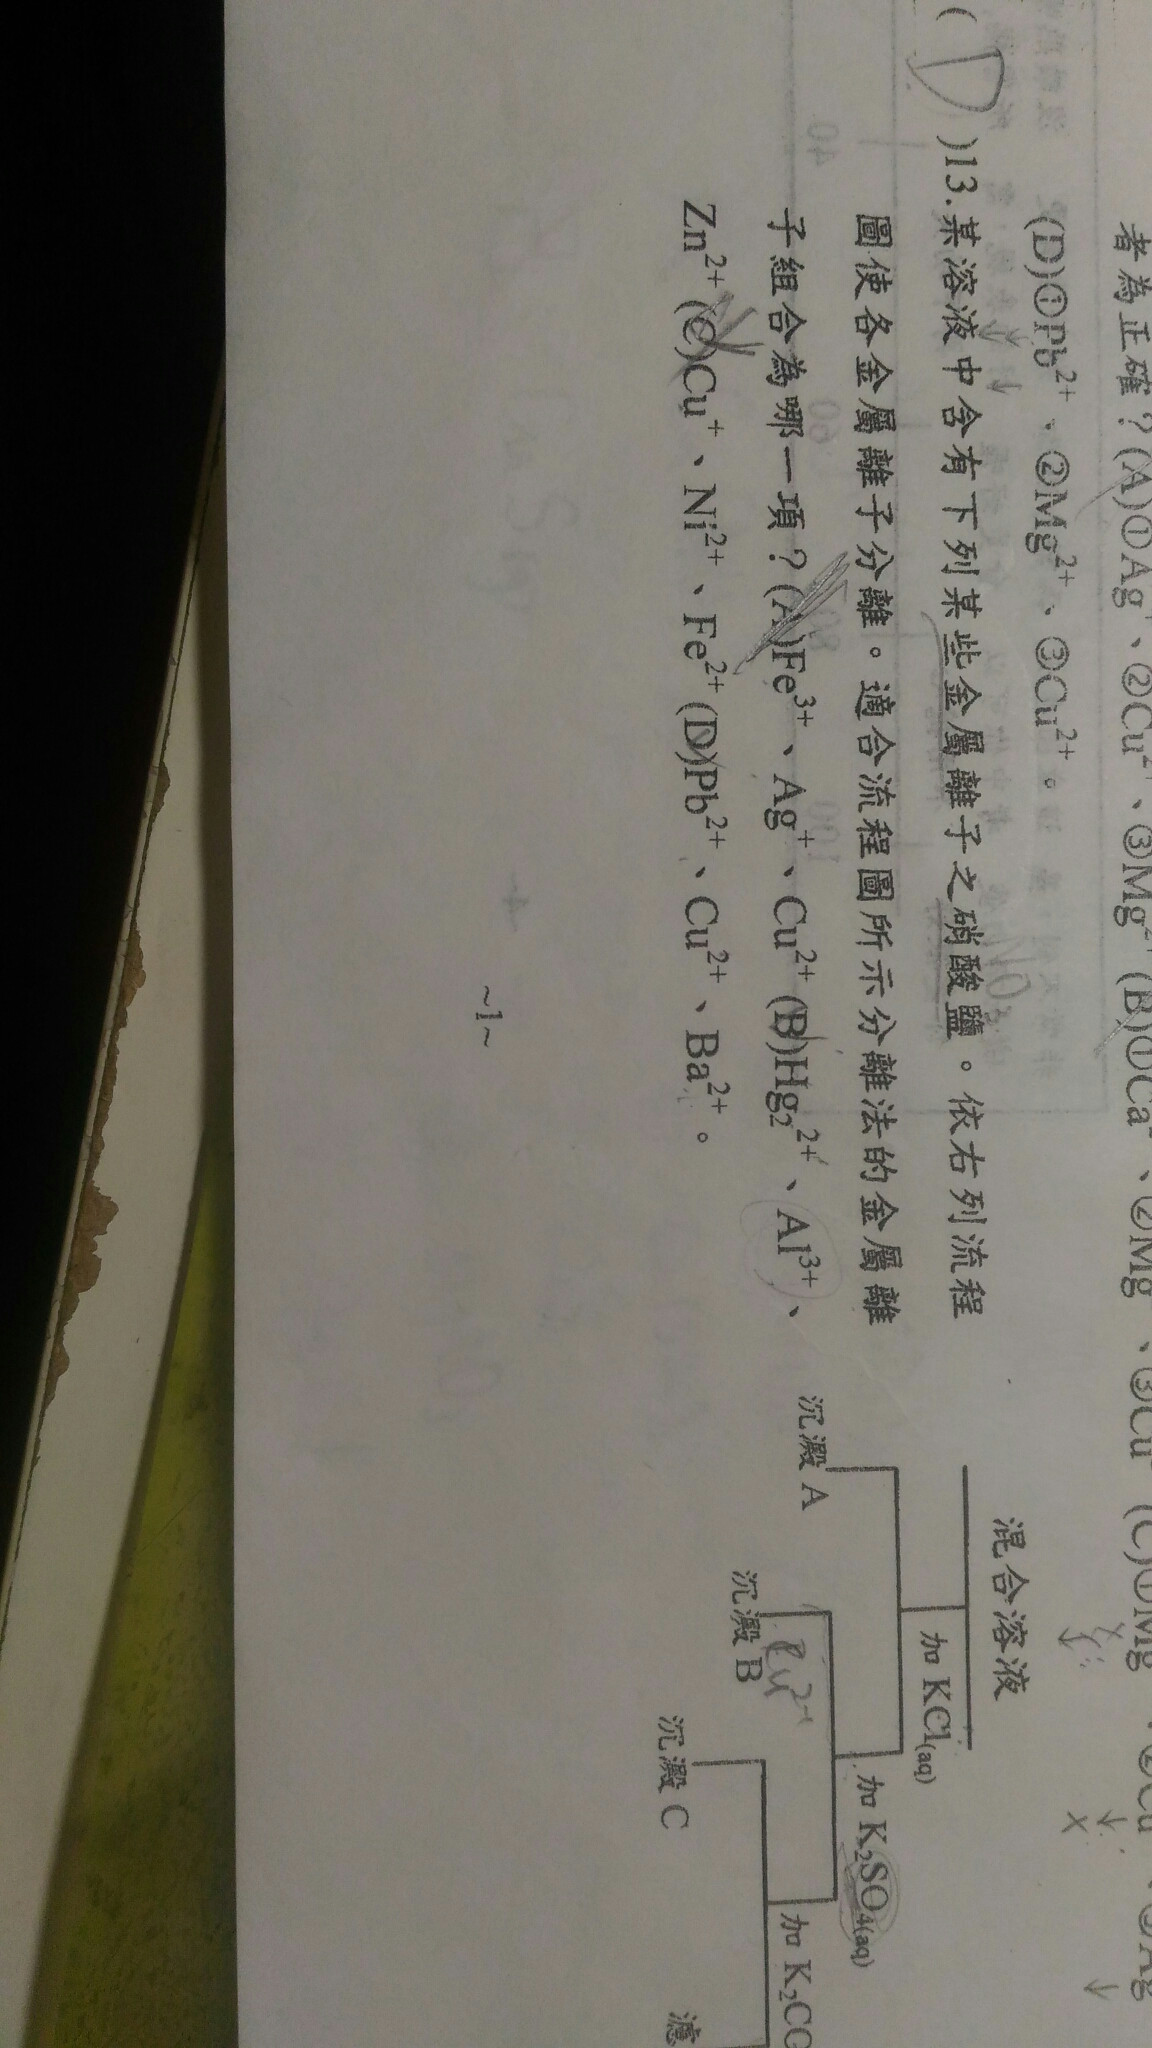 者為正確？(A)①Ag⁺、②Cu²⁺、③Mg²⁺ (B)①Ca²⁺、②Mg²⁺、③Cu²⁺ (C)①Mg²⁺、②Cu²⁺、③Ag⁺
(D)①Pb²⁺、②Mg²⁺、③Cu²⁺。
( D )13.某溶液中含有下列某些金屬離子之硝酸鹽。依右列流程
圖使各金屬離子分離。適合流程圖所示分離法的金屬離
子組合為哪一項？(A)Fe³⁺、Ag⁺、Cu²⁺ (B)Hg₂²⁺、Al³⁺、
Zn²⁺ (C)Cu⁺、Ni²⁺、Fe²⁺ (D)Pb²⁺、Cu²⁺、Ba²⁺。
混合溶液
加 KCl(aq)
沉澱 A
加 K₂SO₄(aq)
沉澱 B
加 K₂CO
沉澱 C
濾
~1~